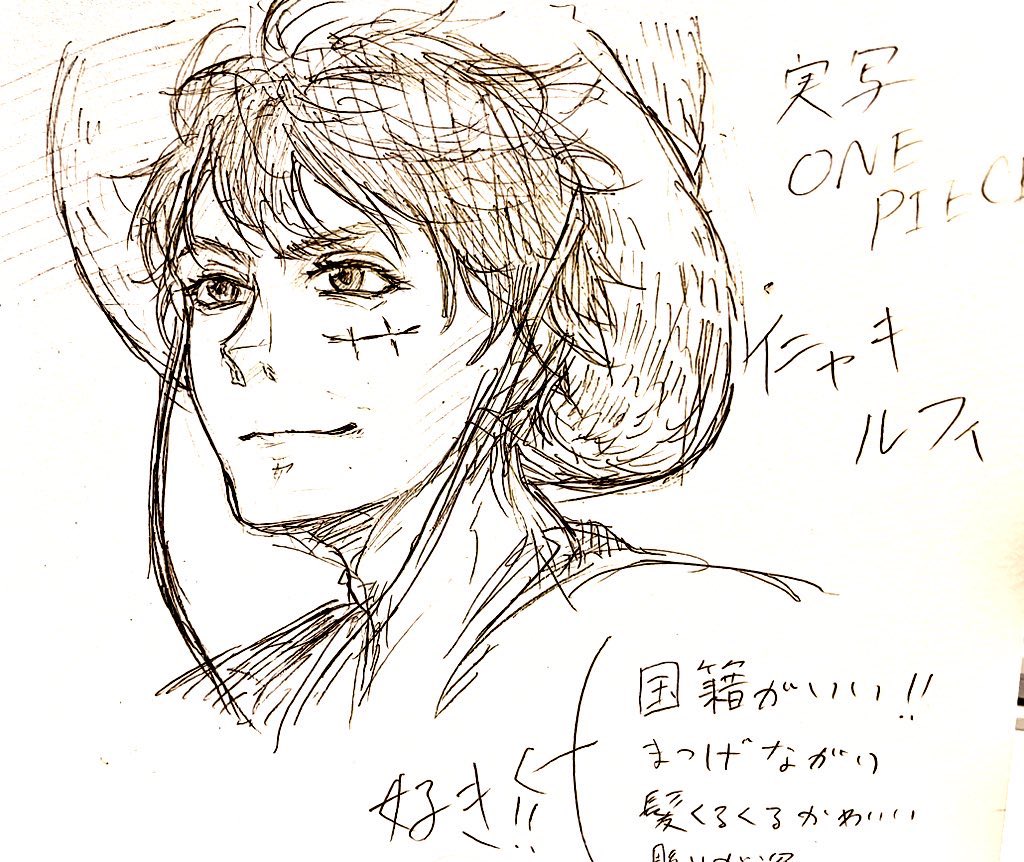 実写
ONE
PIECE
イニャキ
ルフィ
国籍がいい!!
まつげながい
髪くるくるかわいい
好き!!